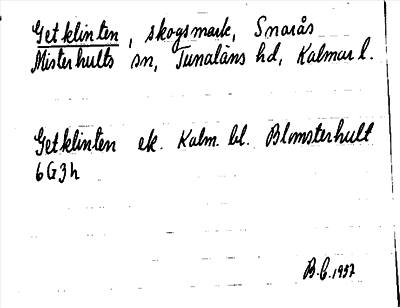 Getklinten, skogsmark, Snarås
Misterhults sn, Tunaläns hd, Kalmar l.
Getklinten ek. Kalm. bl. Blomsterhult
6G3h
B.C. 1957